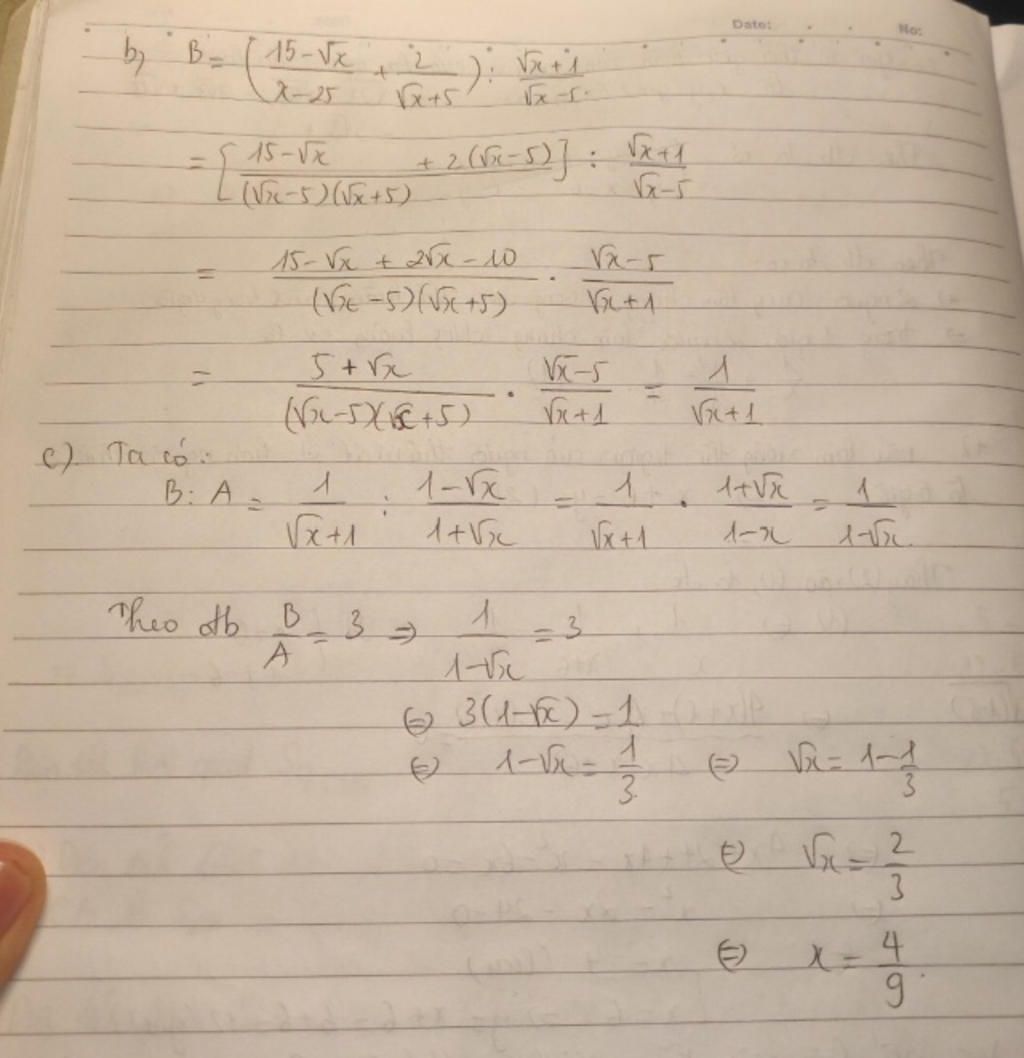 Date: No:
b) B = (15-√x / x-25 + 2 / √x+5) : √x+1 / √x-5.
= [15-√x + 2(√x-5) / (√x-5)(√x+5)] : √x+1 / √x-5
= 15-√x + 2√x - 10 / (√x-5)(√x+5) . √x-5 / √x+1
= 5+√x / (√x-5)(√x+5) . √x-5 / √x+1 = 1 / √x+1
c) Ta có:
B : A = 1 / √x+1 : 1-√x / 1+√x = 1 / √x+1 . 1+√x / 1-x = 1 / 1-√x.
Theo đb B / A = 3 ⇒ 1 / 1-√x = 3
⇔ 3(1-√x) = 1
⇔ 1-√x = 1 / 3. ⇔ √x = 1 - 1 / 3
⇔ √x = 2 / 3
⇔ x = 4 / 9.